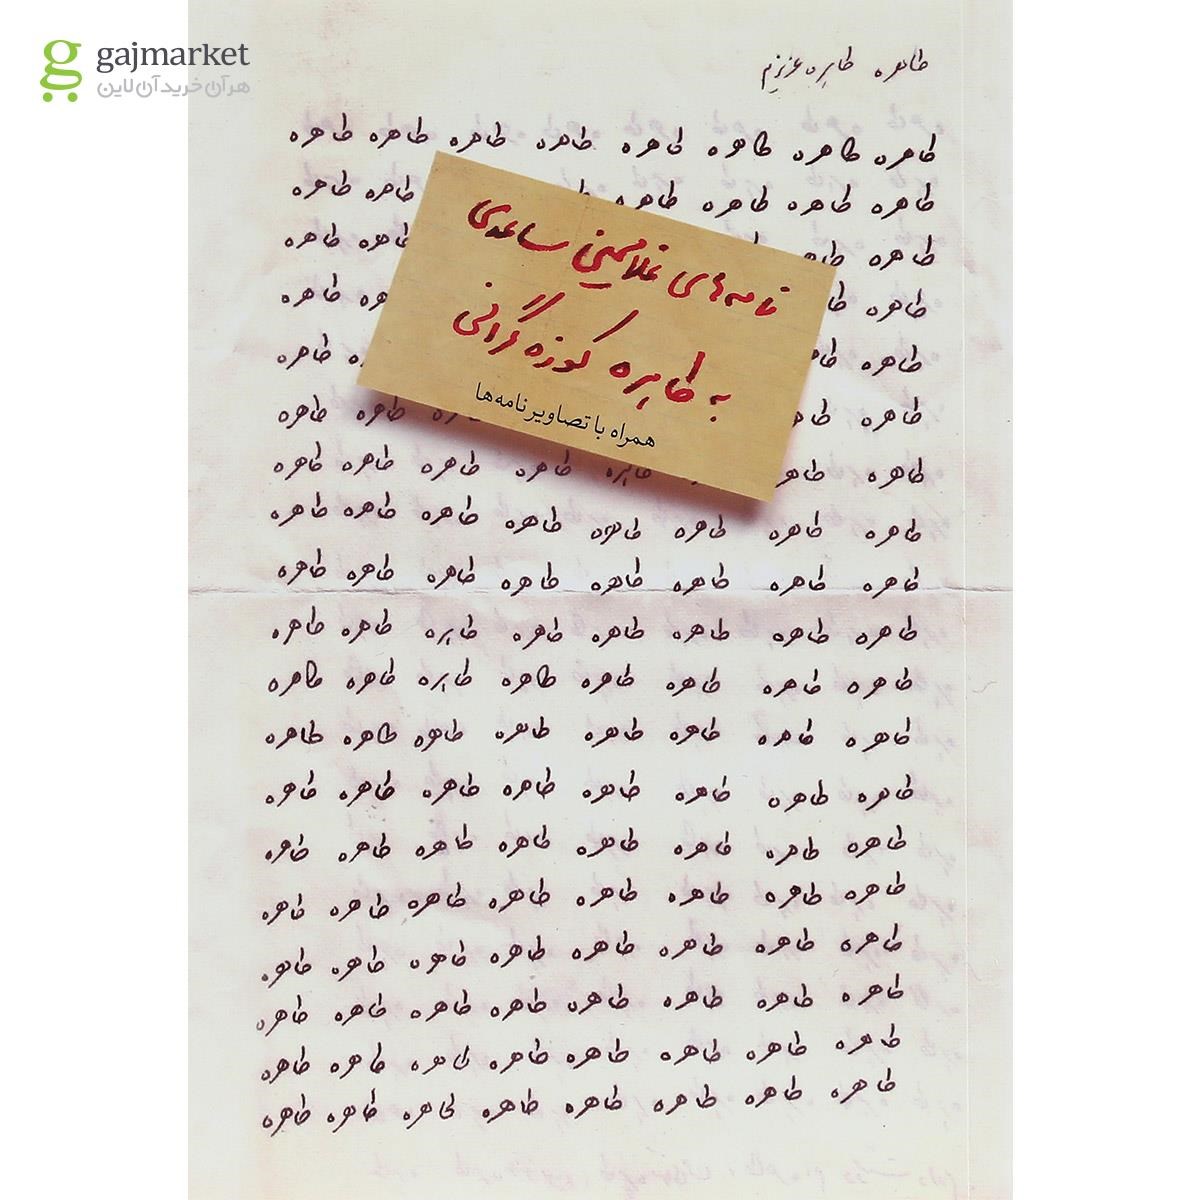 gajmarket
هر آن خرید آن لاین
طاهره طاهره عزیزم
طاهره طاهره طاهره طاهره طاهره طاهره طاهره طاهره
طاهره طاهره طاهره طاهره طاهره طاهره
طاهره طاهره طاهره
طاهره طاهره
طاهره طاهره
طاهره طاهره طاهره
طاهره طاهره طاهره طاهره طاهره طاهره طاهره
طاهره طاهره طاهره طاهره طاهره طاهره طاهره طاهره
طاهره طاهره طاهره طاهره طاهره طاهره طاهره طاهره
طاهره طاهره طاهره طاهره طاهره طاهره طاهره طاهره
طاهره طاهره طاهره طاهره طاهره طاهره طاهره طاهره
طاهره طاهره طاهره طاهره طاهره طاهره طاهره طاهره
طاهره طاهره طاهره طاهره طاهره طاهره طاهره طاهره
طاهره طاهره طاهره طاهره طاهره طاهره طاهره طاهره
طاهره طاهره طاهره طاهره طاهره طاهره طاهره طاهره
طاهره طاهره طاهره طاهره طاهره طاهره طاهره طاهره
طاهره طاهره طاهره طاهره طاهره طاهره طاهره طاهره
طاهره طاهره طاهره طاهره طاهره طاهره طاهره طاهره
طاهره طاهره طاهره طاهره طاهره طاهره طاهره طاهره
نامه‌های غلامحسین ساعدی
به طاهره کوزه‌گرانی
همراه با تصاویر نامه‌ها